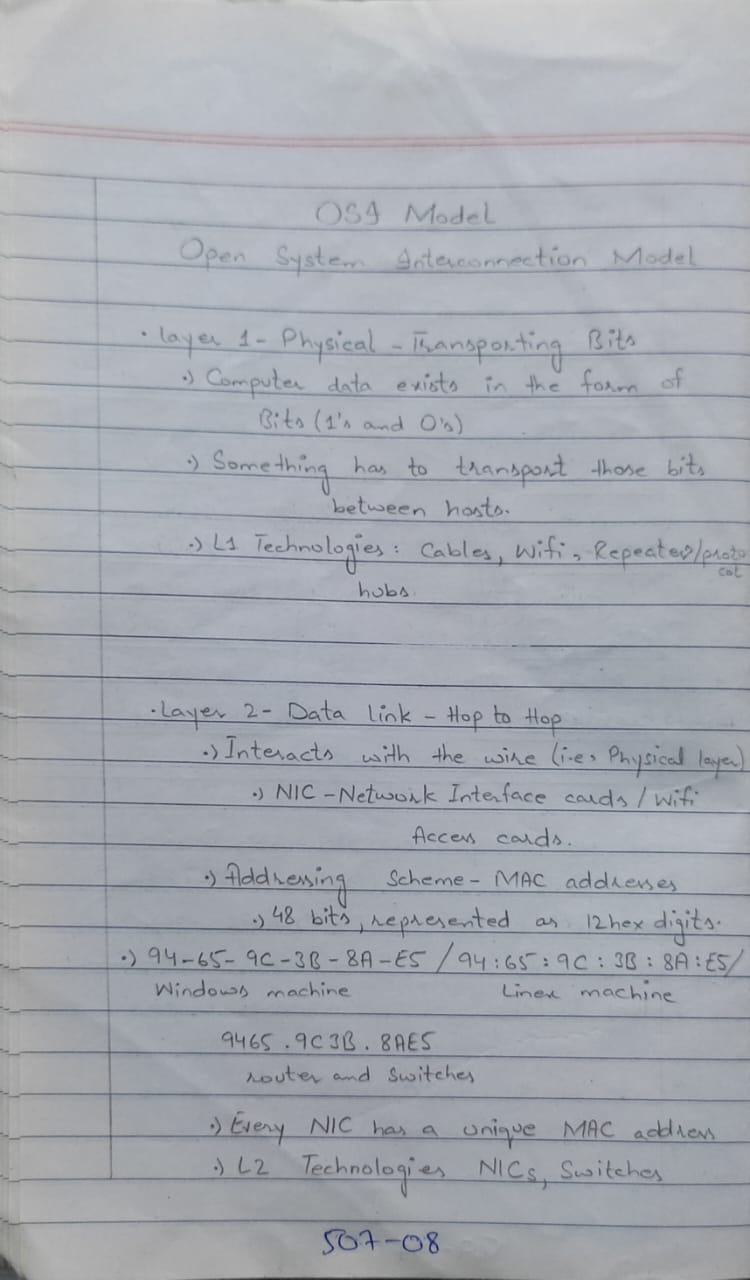 OSI Model
Open System Interconnection Model
• Layer 1 - Physical - Transporting Bits
•) Computer data exists in the form of
Bits (1's and 0's)
•) Something has to transport those bits
between hosts.
•) L1 Technologies: Cables, Wifi, Repeater/proto
col
hubs.
• Layer 2 - Data link - Hop to Hop
•) Interacts with the wire (i.e, Physical layer)
•) NIC - Network Interface cards / Wifi
Access cards.
•) Addressing Scheme - MAC addresses
•) 48 bits, represented as 12 hex digits.
•) 94-65-9C-3B-8A-E5 / 94:65:9C:3B:8A:E5/
Windows machine Linex machine
9465.9C3B.8AE5
router and Switches
•) Every NIC has a unique MAC address
•) L2 Technologies NICs, Switches
507-08